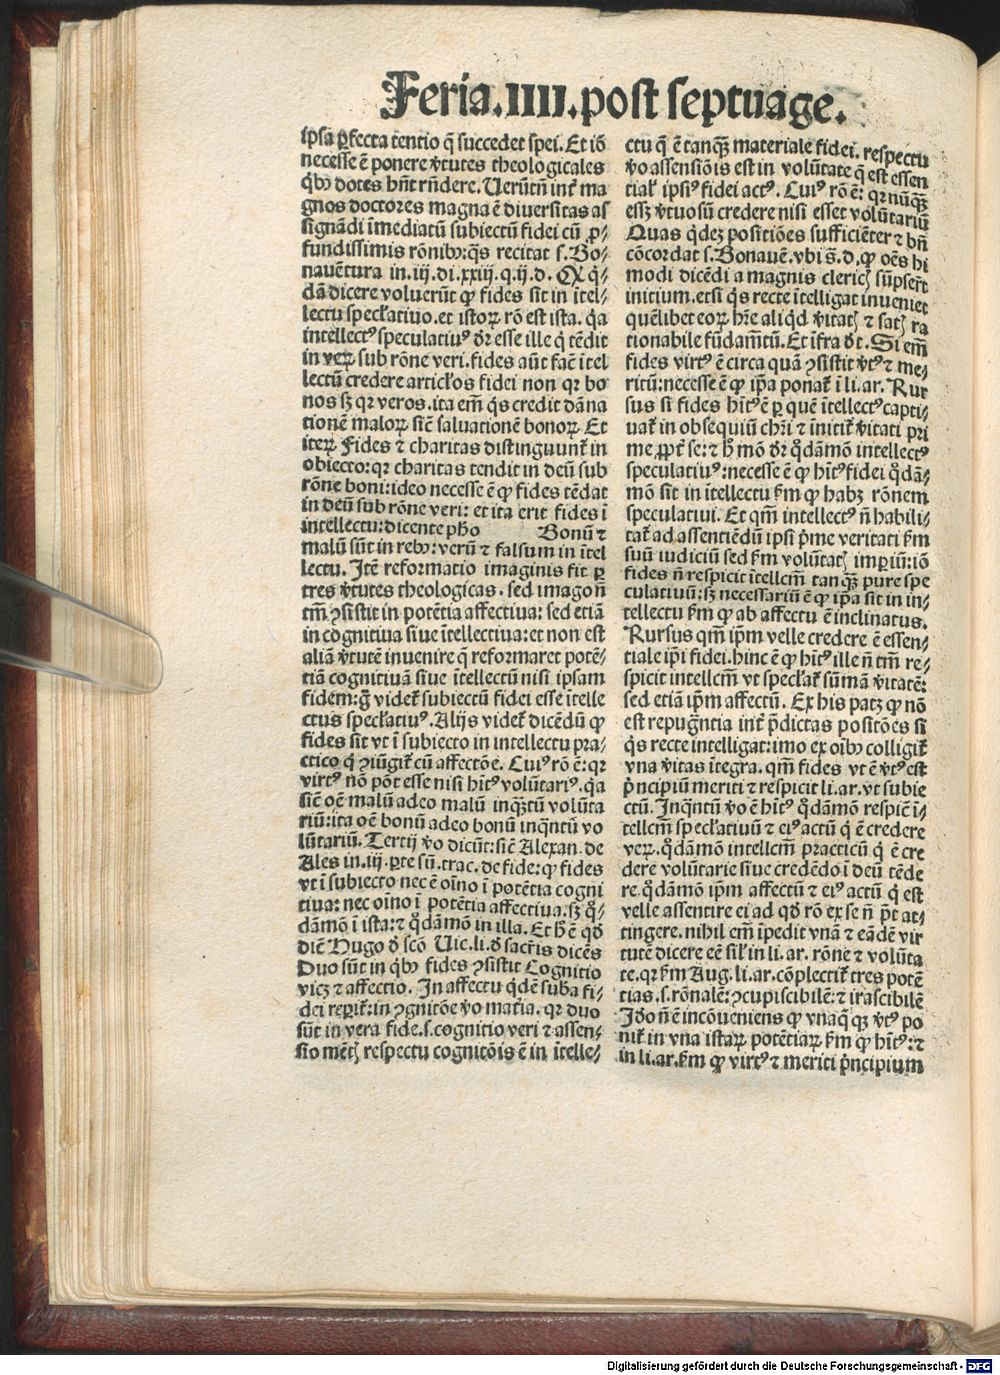 Feria.IIII.post septuage.
ipsa ꝑfecta tentio q̃ succedet spei. Et iõ
necesse ẽ ponere v̾tutes theologicales
q̃bꝰ dotes hñt rñdere. Uerũtñ int̃ ma
gnos doctores magna ẽ diuersitas as
signãdi ĩmediatũ subiectũ fidei cũ ꝓ⸗
fundissimis rõnibꝰ: q̃s recitat s. Bo⸗
nauẽtura in .iij. di. xxiij. q. ij. d. Qȝ q̃⸗
dã dicere voluerũt ꝙ fides sit in ĩtel⸗
lectu specl̃atiuo. et istoꝝ rõ est ista. q̃a
intellectꝰ speculatiuꝰ dr̃ esse ille q̃ tẽdit
in veꝝ sub rõne veri. fides aũt facẽ ĩtel
lectũ credere articl̃os fidei non qꝛ bo
nos sȝ qꝛ veros. ita em̃ q̃s credit dãna
tionẽ maloꝝ sic̃ saluationẽ bonoꝝ. Et
iteꝝ Fides ⁊ charitas distinguunt̃ in
obiecto: qꝛ charitas tendit in deũ sub
rõne boni: ideo necesse ẽ ꝙ fides tẽdat
in deũ sub rõne veri: et ita erit fides ĩ
intellectu: dicente ph̃o Bonũ ⁊
malũ sũt in rebꝰ: verũ ⁊ falsum in ĩtel
lectu. Itẽ reformatio imaginis fit ꝑ
tres v̾tutes theologicas. sed imago ñ
tm̃ ꝯsistit in potẽtia affectiua: sed etiã
in cognitiua siue ĩtellectiua: et non est
aliã v̾tutẽ inuenire q̃ reformaret potẽ⸗
tiã cognitiuã siue ĩtellectũ nisi ipsam
fidem: g̃ videt̃ subiectũ fidei esse ĩtelle
ctus specl̃atiuꝰ. Alijs videt̃ dicẽdũ ꝙ
fides sit vt ĩ subiecto in intellectu pra⸗
ctico q̃ ꝯiũgit̃ cũ affectõe. Cuiꝰ rõ ẽ: qꝛ
virtꝰ nõ põt esse nisi hĩtꝰ volũtariꝰ. q̃a
sic̃ oẽ malũ adeo malũ inqȝtũ volũta
riũ: ita oẽ bonũ adeo bonũ inq̃ntũ vo
lũtariũ. Tertij v̾o dicũt: sic̃ Alexan. de
Ales in .iij. ꝑte sũ. trac. de fide: ꝙ fides
vt ĩ subiecto nec ẽ oĩno ĩ potẽtia cogni
tiua: nec oĩno ĩ potẽtia affectiua. sȝ q̃⸗
dãmõ ĩ ista: ⁊ q̃dãmõ in illa. Et h̃ ẽ qd̃
dic̃ Hugo d̾ scõ Uic. li. d̾ sacr̃is dicẽs
Duo sũt in q̃bꝰ fides ꝯsistit Cognitio
vicȝ ⁊ affectio. In affectu q̃dẽ suba fi⸗
dei reꝑit̃: in ꝯgnitõe v̾o mat̃ia. qꝛ duo
sũt in vera fide. s. cognitio veri ⁊ assen⸗
sio mẽtꝭ respectu cognitõis ẽ in ĩtelle⸗
ctu q̃ ẽ tanqȝ materiale fidei. respectu
v̾o assensiõis est in volũtate q̃ est essen
tial̃ ipsiꝰ fidei actꝰ. Cuiꝰ rõ ẽ: qꝛ nũqȝ
essȝ v̾tuosũ credere nisi esset volũtariũ
Quas q̃dẽ positiões sufficiẽter ⁊ bñ
cõcordat s. Bonauẽ. vbi s̃. d. ꝙ oẽs hi
modi dicẽdi a magnis clericꝭ sũpser̃t
initium. etsi q̃s recte ĩtelligat inueniet
quẽlibet eoꝝ hr̃e aliq̃d v̾itatꝭ ⁊ satꝭ ra
tionabile fũdamẽtũ. Et ĩfra dt̃. Si em̃
fides virtꝰ ẽ circa quã ꝯsistit v̾tꝰ ⁊ me⸗
ritũ: necesse ẽ ꝙ ip̃a ponat̃ ĩ li. ar. Rur
sus si fides hĩtꝰ ẽ ꝑ quẽ ĩtellectꝰ capti⸗
uat̃ in obsequiũ chr̃i ⁊ ĩnitit̃ v̾itati pri
me ꝓpt̃ se: ⁊ h̾ mõ dr̃ q̃dãmõ intellectꝰ
speculatiuꝰ: necesse ẽ ꝙ hĩtꝰ fidei q̃dã⸗
mõ sit in ĩtellectu ẜm ꝙ habȝ rõnem
speculatiui. Et qm̃ intellectꝰ ñ habili⸗
tat̃ ad assentiẽdũ ipsi p̃me veritati ẜm
suũ iudiciũ sed ẜm volũtatꝭ imꝑiũ: iõ
fides ñ respicit ĩtellcm̃ tanqȝ pure spe
culatiuũ: sȝ necessariũ ẽ ꝙ ip̃a sit in in⸗
tellectu ẜm ꝙ ab affectu ẽ inclinatus.
Rursus qm̃ ip̃m velle credere ẽ essen⸗
tiale ip̃i fidei. hinc ẽ ꝙ hĩtꝰ ille ñ tm̃ re⸗
spicit intellcm̃ vt specl̃at̃ sũmã v̾itatẽ:
sed etiã ip̃m affectũ. Ex his patȝ ꝙ nõ
est repug̃ntia int̃ p̃dictas positões si
q̃s recte intelligat: imo ex oĩbꝰ colligit̃
vna v̾itas ĩtegra. qm̃ fides vt ẽ v̾tꝰ est
p̃ncipiũ meriti ⁊ respicit li. ar. vt subie
ctũ. Inq̃ntũ v̾o ẽ hĩtꝰ q̃dãmõ respic̃ ĩ⸗
tellcm̃ specl̃atiuũ ⁊ eiꝰ actũ q̃ ẽ credere
veꝝ. q̃dãmõ intellcm̃ practicũ q̃ ẽ cre
dere volũtarie siue credẽdo ĩ deũ tẽde
re. q̃dãmõ ip̃m affectũ ⁊ eiꝰ actũ q̃ est
velle assentire ei ad qd̃ rõ ex se ñ p̃t at⸗
tingere. nihil em̃ ĩpedit vnã ⁊ eãdẽ vir
tutẽ dicere eẽ sil̃ in li. ar. rõne ⁊ volũta
te. qꝛ ẜm Aug. li. ar. cõplectit̃ tres potẽ
tias. s. rõnalẽ: ꝯcupiscibilẽ: ⁊ irascibilẽ
Id̾o ñ ẽ incõueniens ꝙ vnaq̃qȝ v̾tꝰ po
nit̃ in vna istaꝝ potẽtiaꝝ ẜm ꝙ hĩtꝰ: ⁊
in li. ar. ẜm ꝙ virtꝰ ⁊ meriti p̃ncipium
Digitalisierung gefördert durch die Deutsche Forschungsgemeinschaft - DFG